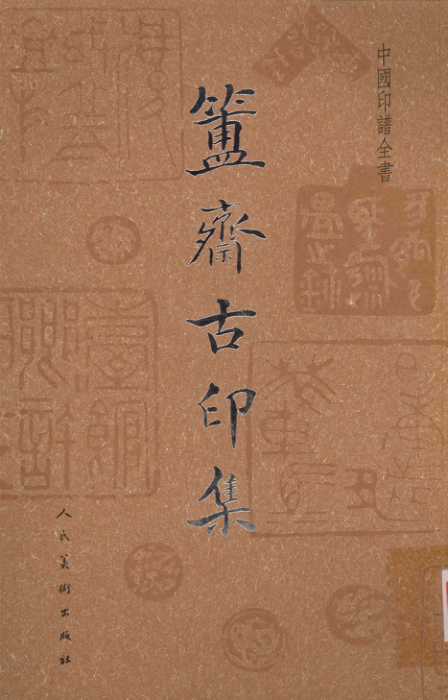 中國印譜全書
簠齋古印集
人民美術出版社